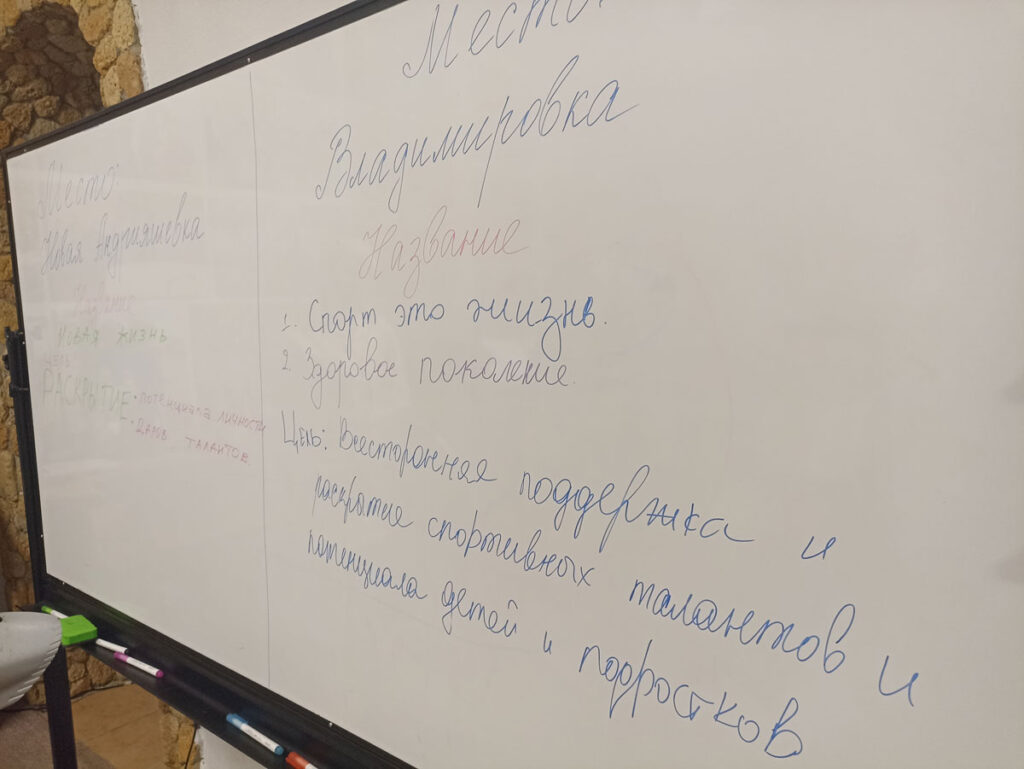 Место:
Новая Андрияшевка
Название
НОВАЯ ЖИЗНЬ
Цель
РАСКРЫТИЕ • ПОТЕНЦИАЛА ЛИЧНОСТИ
• ДАНЬ ТАЛАНТОВ
Место:
Владимировка
Название
1. Спорт это жизнь.
2. Здоровое поколение.
Цель: Всесторонняя поддержка и
раскрытие спортивных талантов и
потенциала детей и подростков